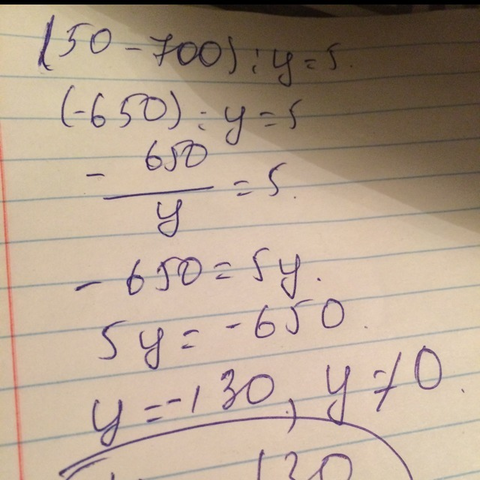 (50-700):y=5.
(-650):y=5
-650/y=5.
-650=5y.
5y=-650.
y=-130, y≠0.
130